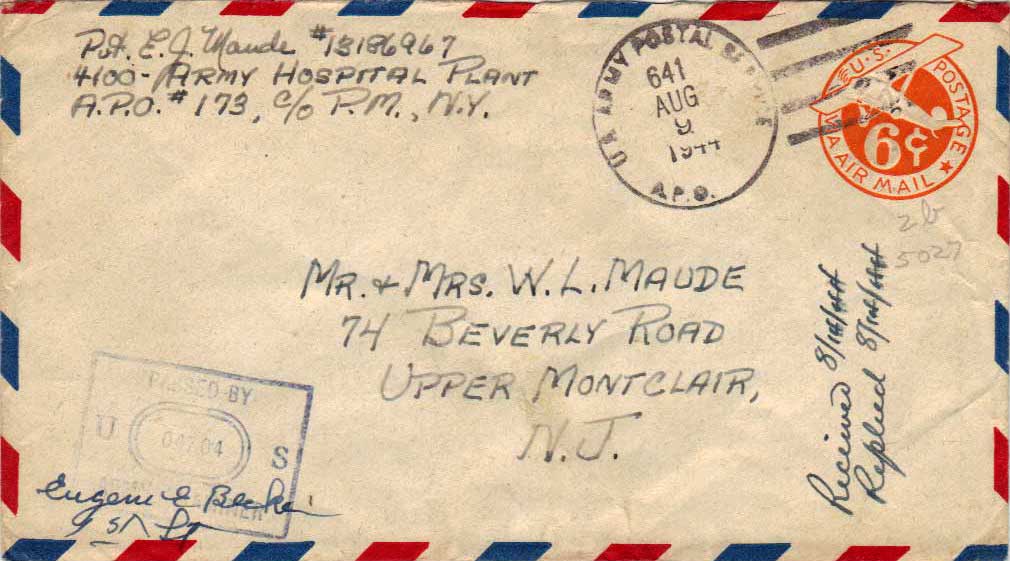 Pvt. E. J. Maude #13186967
4100-ARMY HOSPITAL PLANT
A.P.O. #173, C/o P.M., N.Y.
U.S. ARMY POSTAL
641
AUG
9
1944
A.P.O.
U.S. POSTAGE
6¢
VIA AIR MAIL
2b
5027
MR. + MRS. W. L. MAUDE
74 BEVERLY ROAD
UPPER MONTCLAIR,
N.J.
Received 8/14/44
Replied 8/14/44
PASSED BY
U S
04204
ARMY EXAMINER
Eugene E
1st Lt